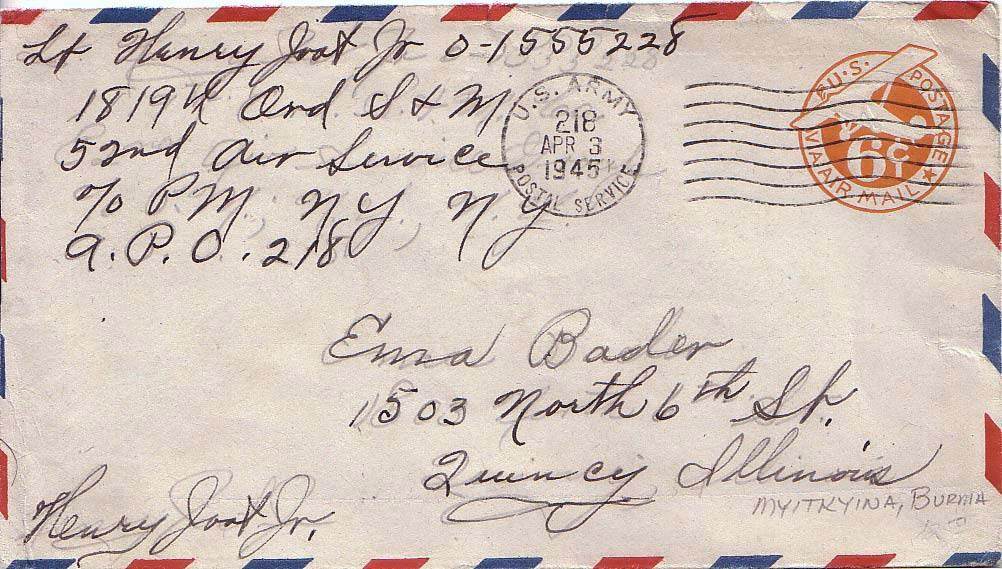 Lt Henry Jr 0-1555228
1819th Ord S & M.
52nd Air Service
c/o P.M., N.Y., N.Y.
A.P.O. 218
U.S. ARMY
218
APR 3
1945
POSTAL SERVICE
U.S. POSTAGE
6¢
VIA AIR MAIL
Emma Bader
1503 North 6th St.
Quincy Illinois
MYITKYINA, BURMA
Henry Jr.